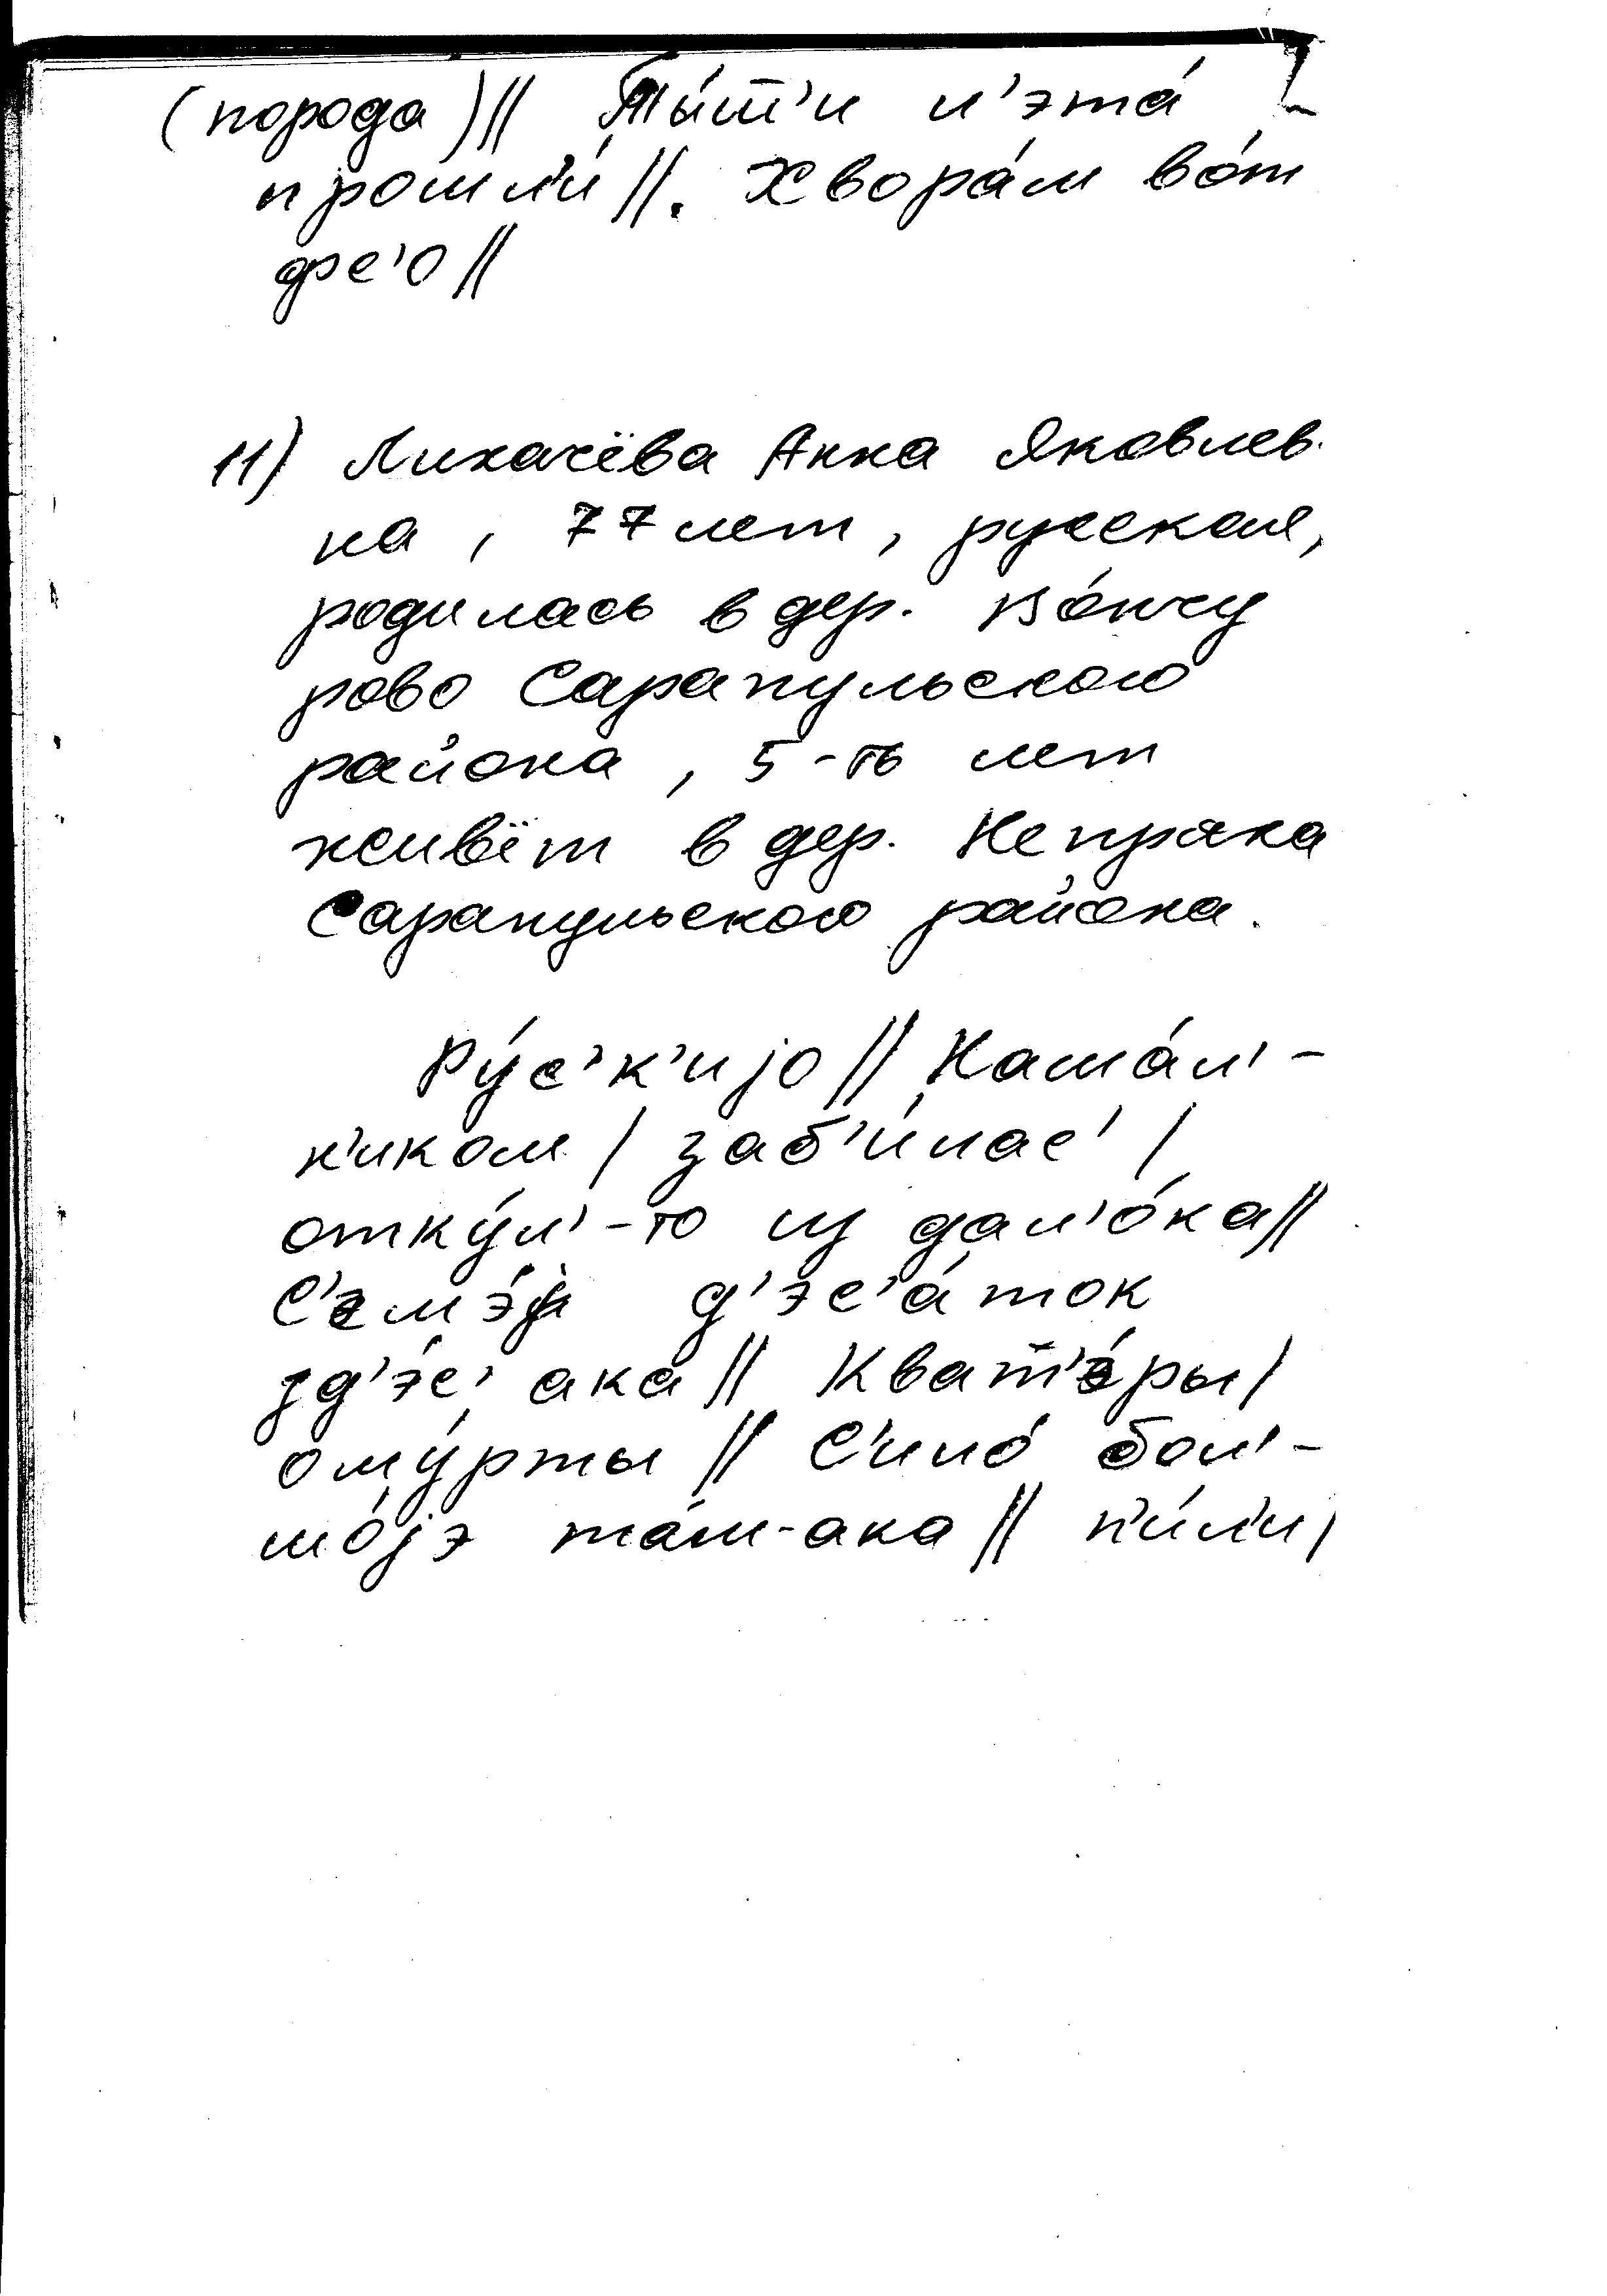 (порода)// Ты́т'и л'эта́
прошл'и́ //. Хвора́м во́т
фс'о //
11) Лихачёва Анна Яковлев-
на, 77 лет, русская,
родилась в дер. Во́нчу
рово Сарапульского
района, 5-ть лет
живёт в дер. Непряха
Сарапульского района.
Ру́с'к'иjо // Нача́л'-
н'иком / заб'и́лас' /
отку́л'-то из дал'о́ка //
С'эмэ́j д'эс'а́ток
зд'э́с' ака // Кват'э́ры /
ому́рты // С'ило́ бол'-
шо́jэ та́м-ака // п'и́л'и /